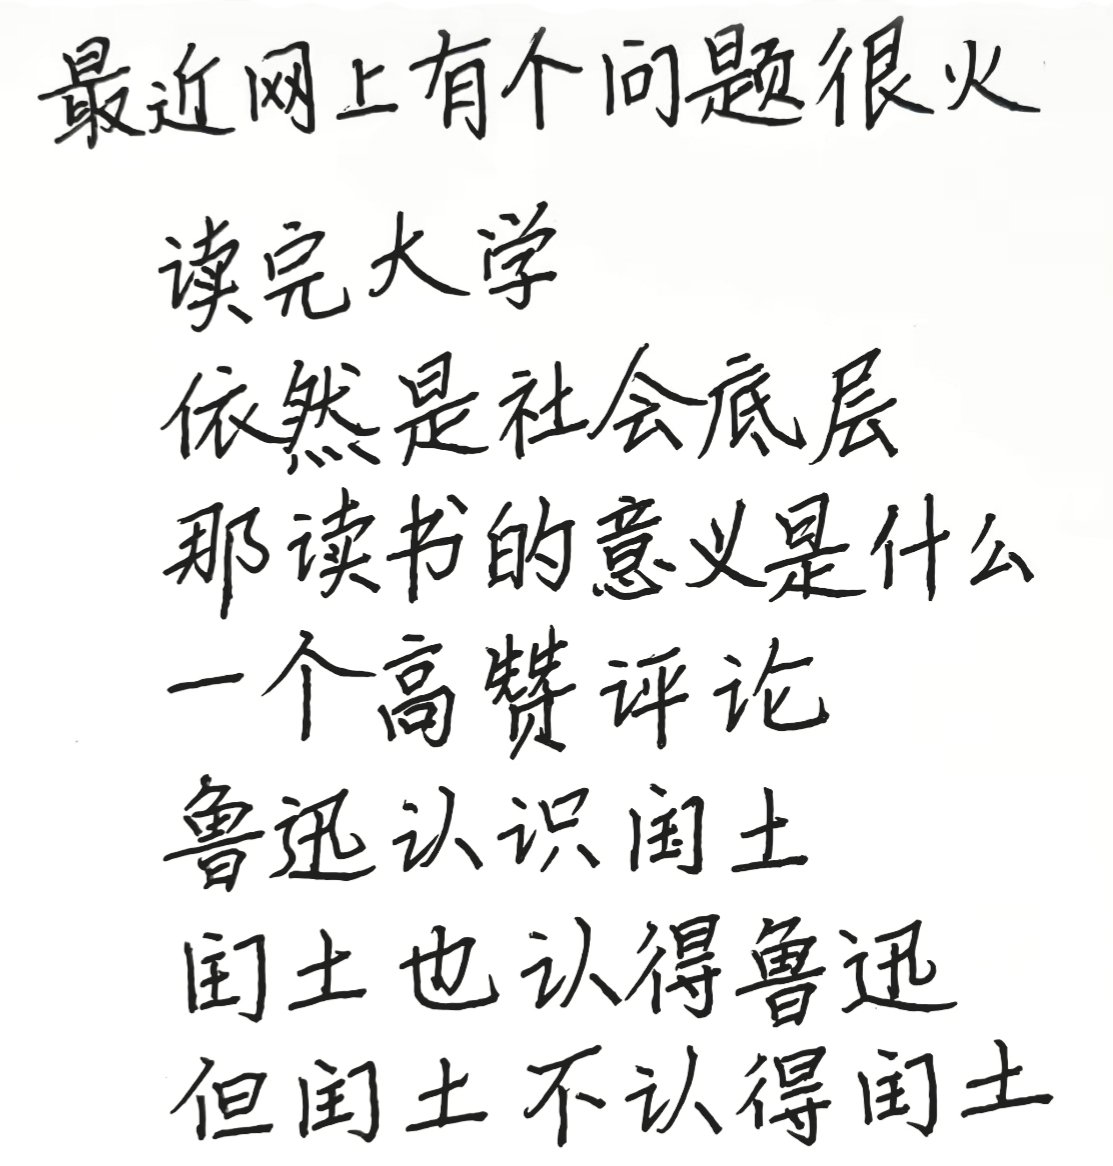 最近网上有个问题很火
读完大学
依然是社会底层
那读书的意义是什么
一个高赞评论
鲁迅认识闰土
闰土也认得鲁迅
但闰土不认得闰土